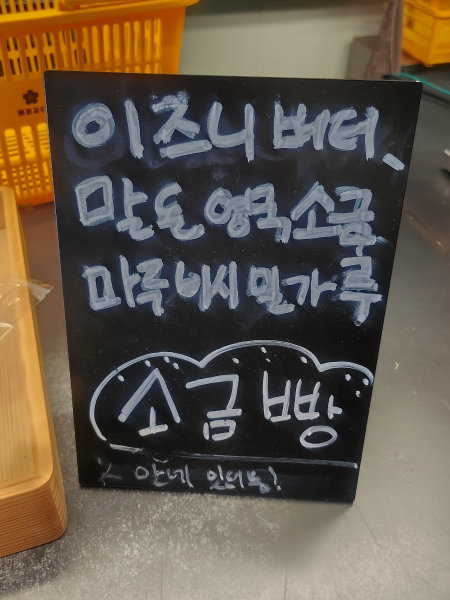 이즈니 버터,
말돈 영국소금
마루비시 밀가루
소금빵
안에 있어용!